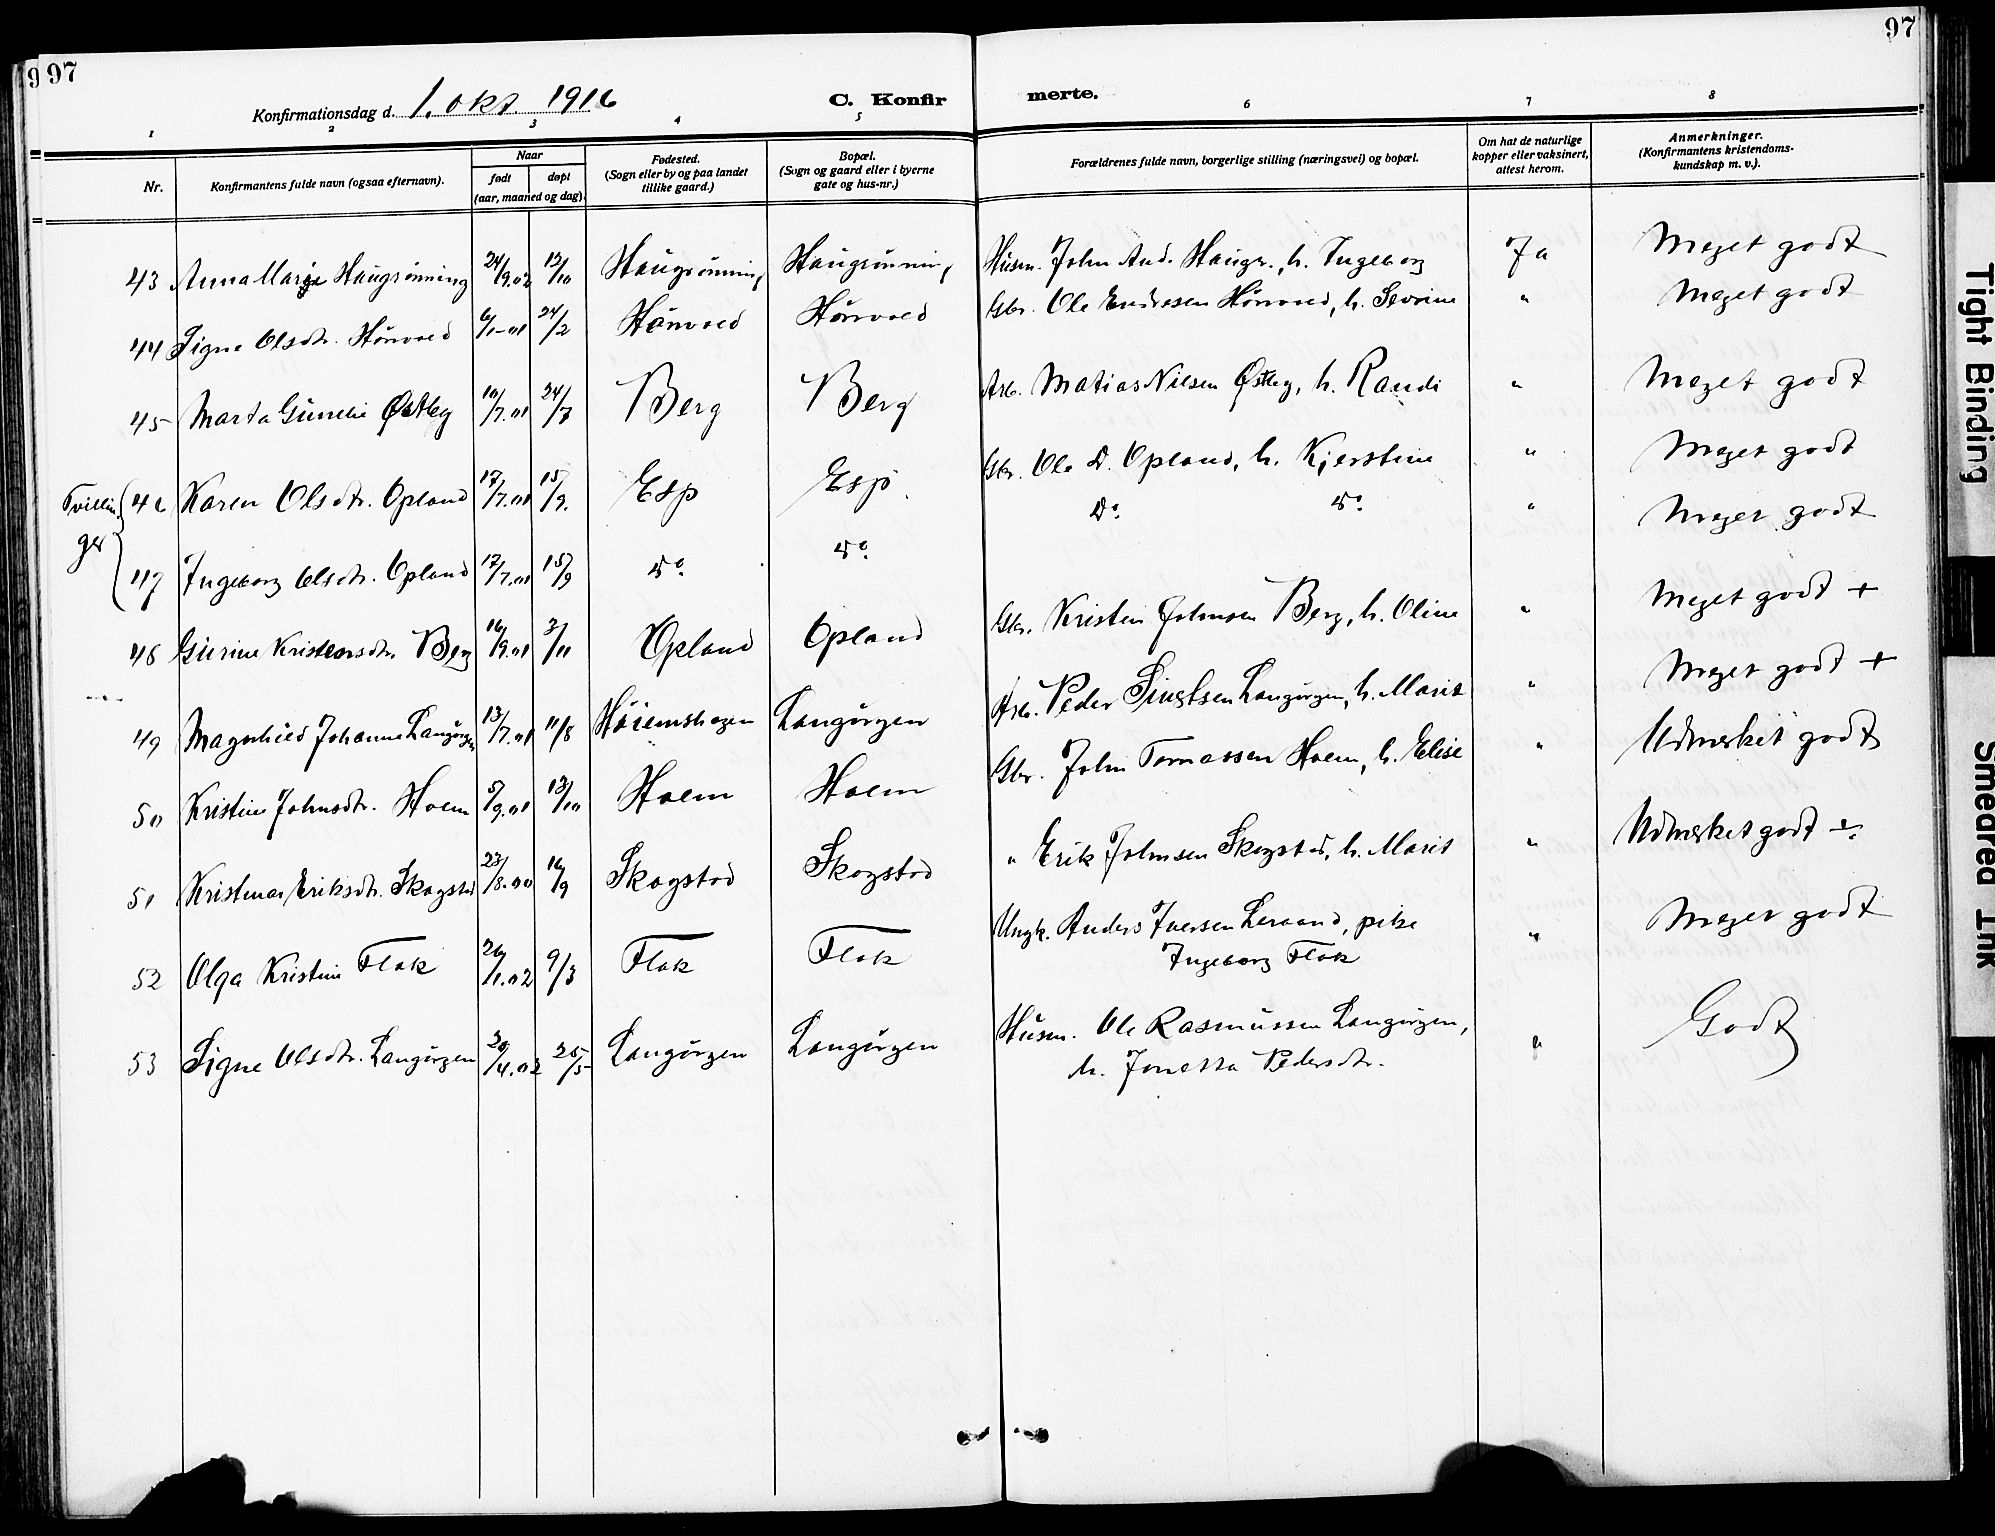 97
97
97
Konfirmationsdag d. 1. okt. 1916
C. Konfir
merte.
1 2 3 4 5 6 7 8
Nr.
Konfirmantens fulde navn (ogsaa efternavn).
Naar
født
døpt
(aar, maaned og dag).
Fødested.
(Sogn eller by og paa landet
tillike gaard.)
Bopæl.
(Sogn og gaard eller i byerne
gate og hus-nr.)
Forældrenes fulde navn, borgerlige stilling (næringsvei) og bopæl.
Om hat de naturlige
kopper eller vaksinert,
attest herom.
Anmerkninger.
(Konfirmantens kristendoms-
kundskap m. v.).
43 Anna Marie Haugrønning 24/9.02 12/10 Haugrønning Haugrønning Husm. John And. Haugr., h. Ingeborg Ja Meget godt
44 Signe Olsdtr. Hønvoed 6/1-01 24/2 Hønvoed Hønvoed Gbr. Ole Endresen Hønvoed, h. Sevrine " Meget godt
45 Marta Gunelie Østby 10/7.01 24/7 Berg Berg Arb. Matias Nilsen Østby, h. Randi " Meget godt
Tvillin-
ger
46 Karen Olsdtr. Opland 17/7.01 15/9. Esp Esp. Gbr. Ole D. Opland, h. Kjerstine " Meget godt
47 Ingeborg Olsdtr. Opland 17/7.01 15/9 do. do. Do. do. " Meget godt
48 Gurine Kristensdtr. Berg 16/9.01 3/11 Opland Opland Gbr. Kristen Johnsen Berg, h. Oline " Meget godt +
49 Magnhild Johanne Langørgen 13/7.01 11/8 Høiemshagen Langørgen Arb. Peder Langørgen, h. Marit " Meget godt +
50 Kristine Johnsdtr. Hoem 5/9.01 13/10 Hoem Hoem Gbr. John Tomassen Hoem, h. Elise " Udmerket godt
51 Eriksdtr. Skogstad 23/8.00 16/9 Skogstad Skogstad " Erik Johnsen Skogstad, h. Marit " Udmerket godt ÷
52 Olga Kristine Flak 26/1.02 9/3 Flak Flak Ungk. Anders Iversen Leraand, pike " Meget godt
Ingeborg Flak
53 Signe Olsdtr. Langørgen 20/4.02 25/5 Langørgen Langørgen Husm. Ole Rasmussen Langørgen, " Godt
h. Jonetta Pedersdtr.
Tight Binding
Smeared Ink